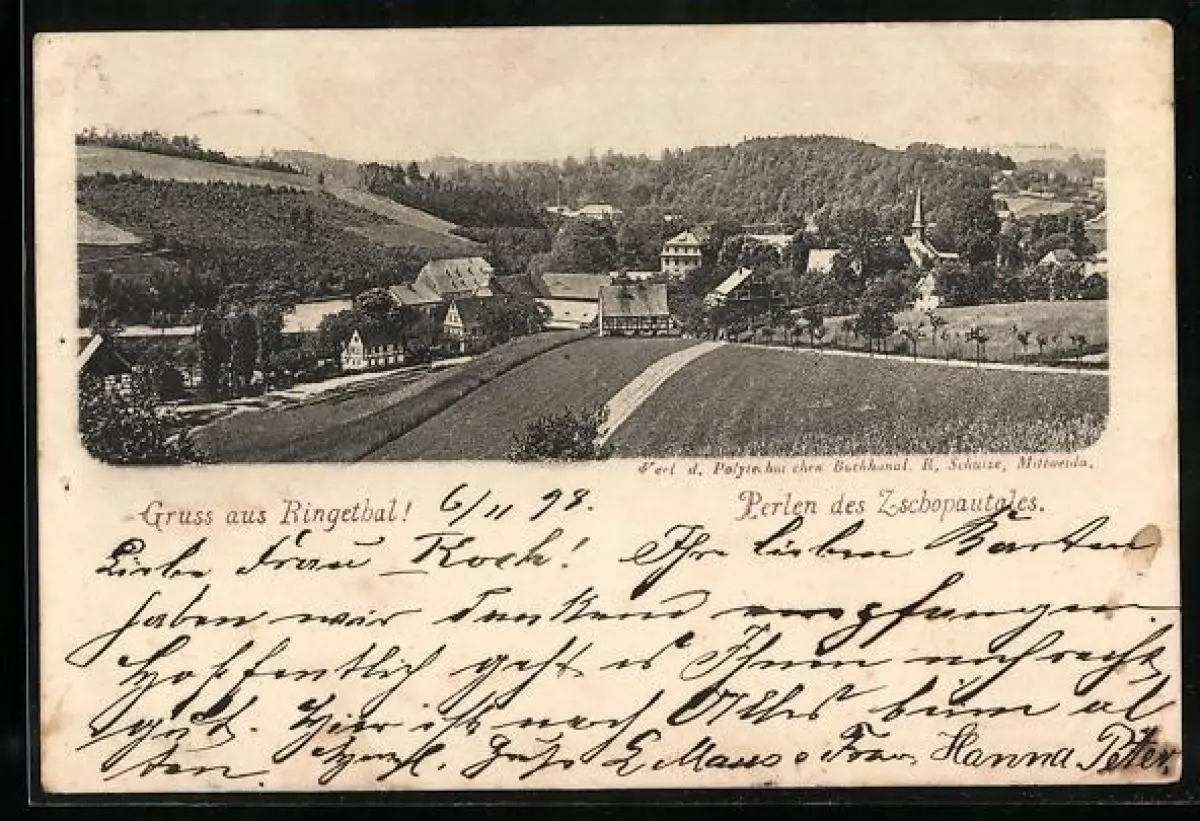 Verl d. Polytechnischen Buchhandl. R. Schulze, Mittweida.
Gruss aus Ringethal! 6/11 98. Perlen des Zschopautales.
Liebe Frau Koch! Ihre lieben Karten
haben wir dankend empfangen.
Hoffentlich geht es Ihnen noch recht
gut. Hier ist noch Alles beim al
ten. Herzl. Maus Frau Hanna Peter.